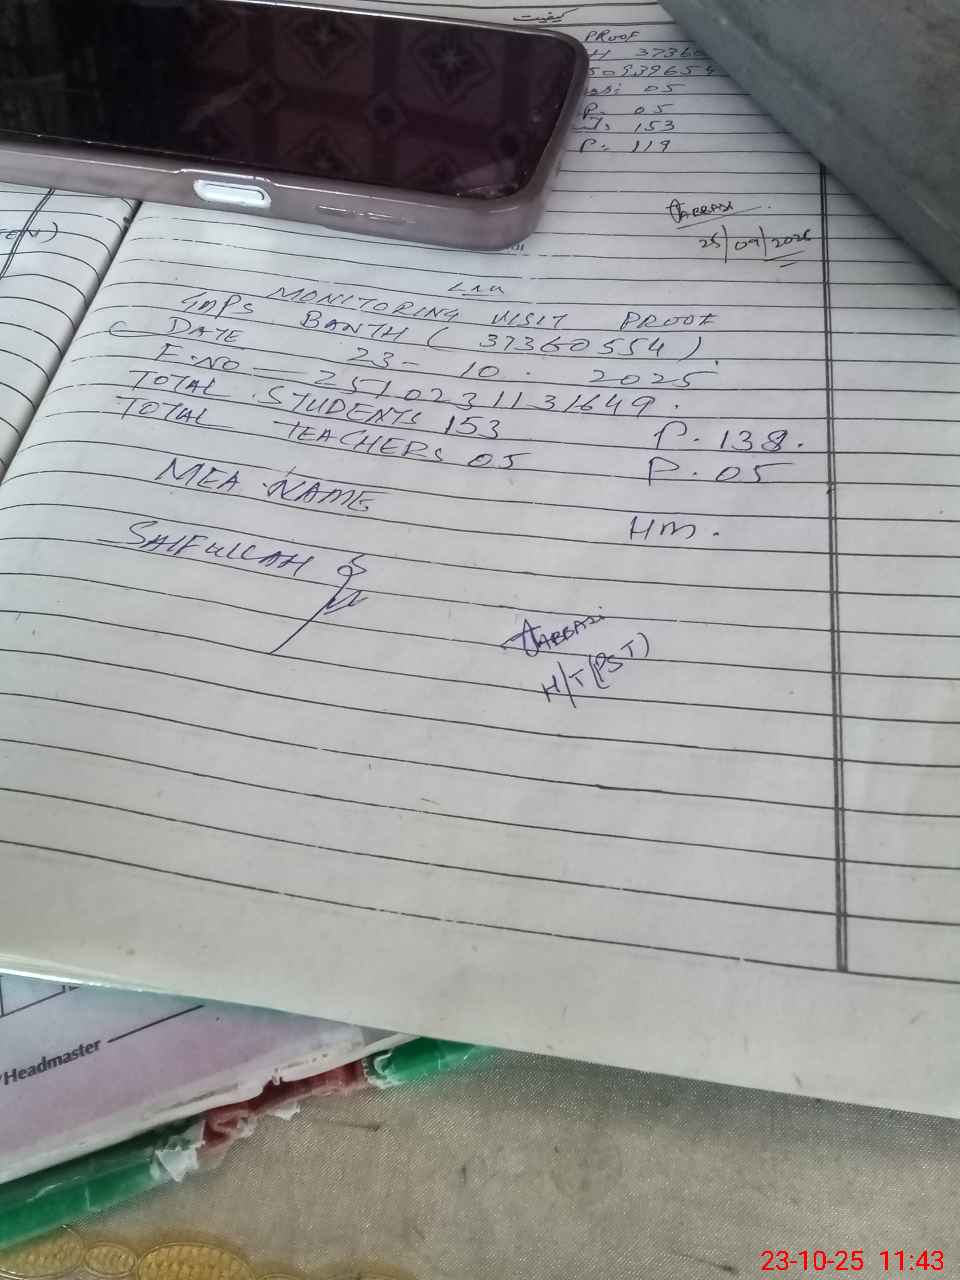 کیفیت
PROOF
H 37360
50939654
05
P. 05
153
P. 119
ARBASI
25/09/2025
MONITORING VISIT PROOF
GMPS BANTH (37360554)
DATE 23-10.2025
F.NO — 2510231131649.
TOTAL STUDENTS 153 P.138.
TOTAL TEACHERS 05 P.05
MEA NAME HM.
SAIFULLAH
ARBASI
H/T(PST)
/Headmaster
23-10-25 11:43